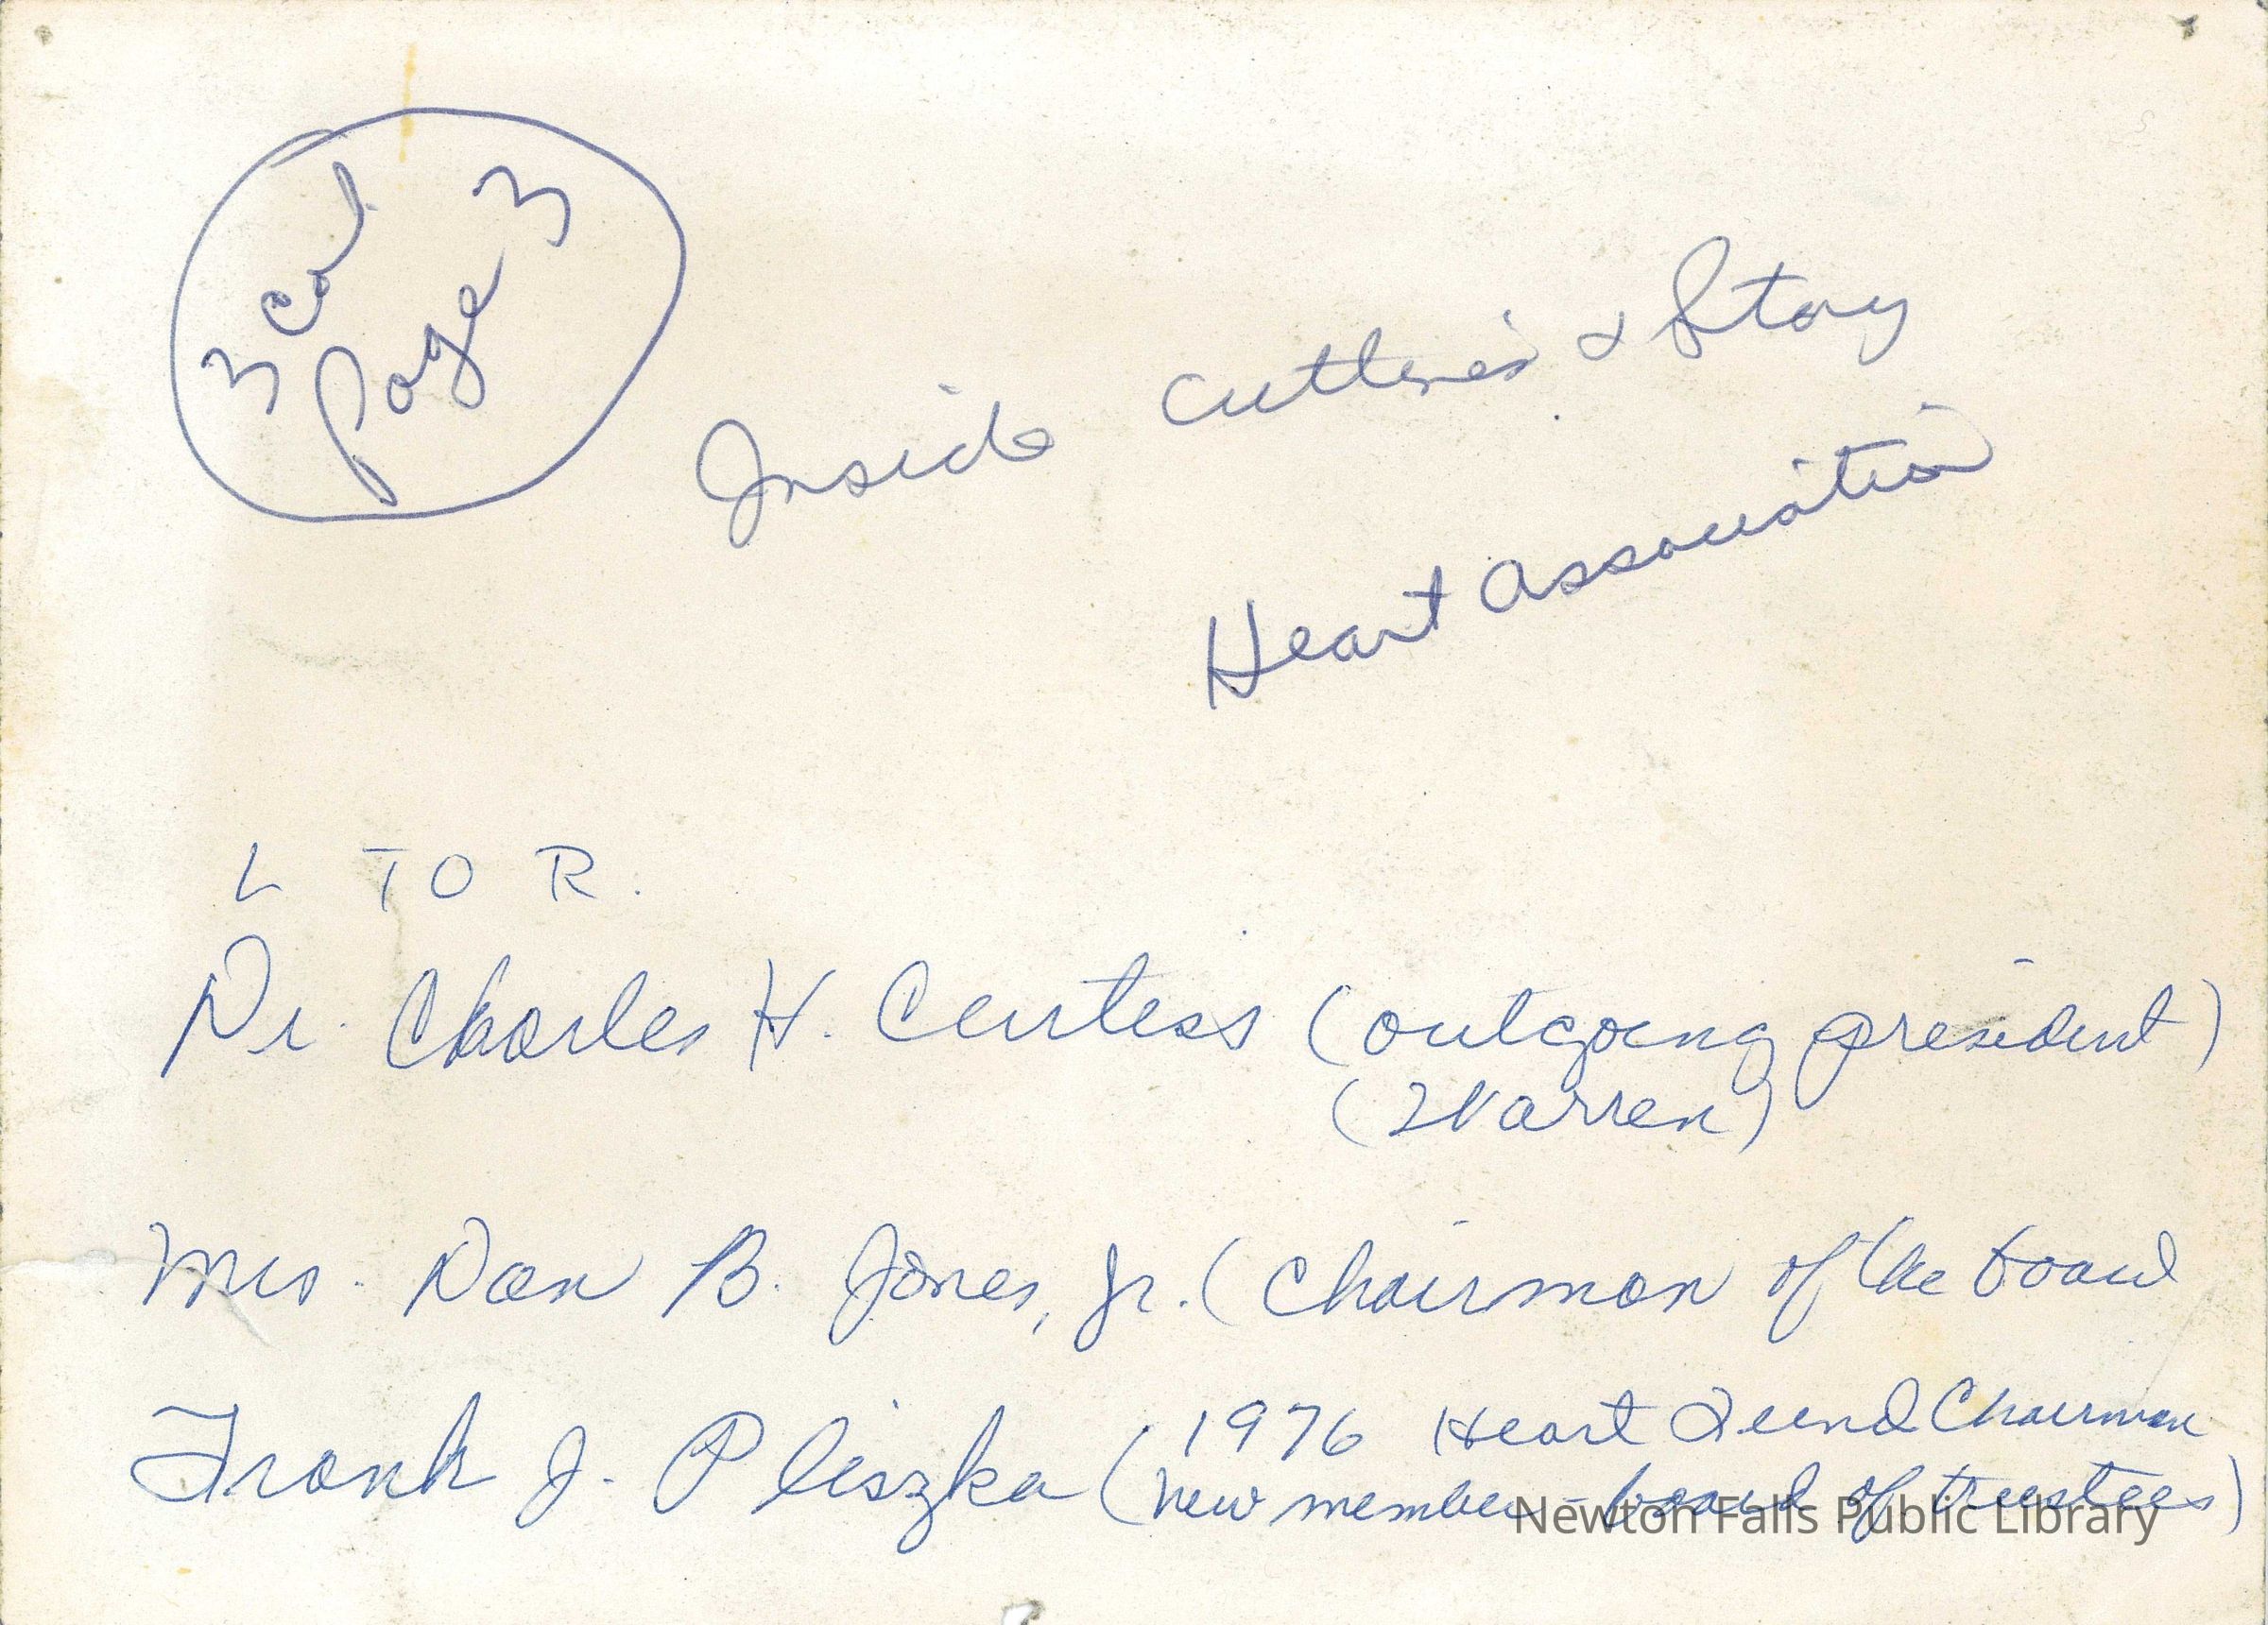 3 Col
Page 3
Inside Cutlines & Story
Heart Association
L TO R.
Dr. Charles H. Curtess (outgoing president)
(Warren)
Mrs. Dan B. Jones, Jr. (Chairman of the board
Frank J. Pliszka (1976 Heart Fund Chairman
New member - board of trustees)
Newton Falls Public Library